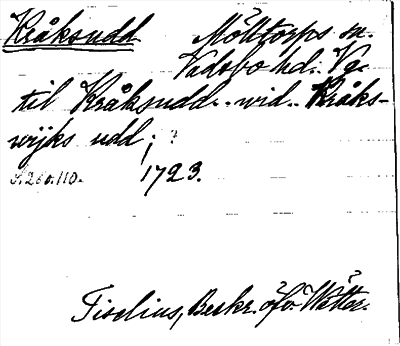 Kråksudd Mölltorps sn.
Vadsbo hd. Vg.
til Kråksudd. wid. Kråks-
wijks udd; ?
S. 260.110. 1723.
Tiselius, Beskr. öfv. Wätter.